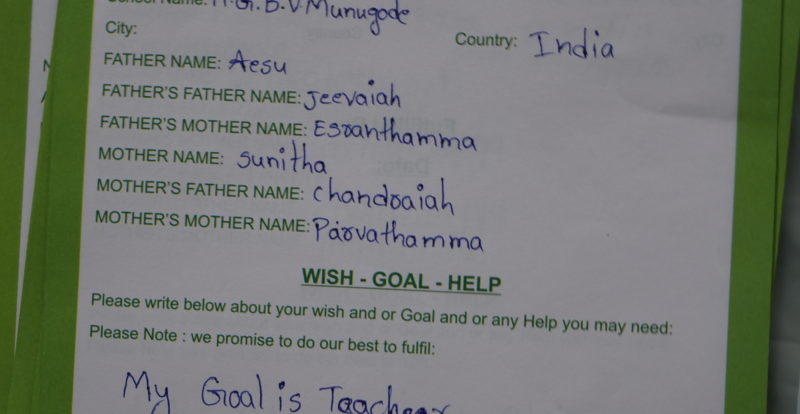 School Name: K.G.B.V Munugode
City:
Country: India
FATHER NAME: Aesu
FATHER'S FATHER NAME: Jeevaiah
FATHER'S MOTHER NAME: Esranthamma
MOTHER NAME: sunitha
MOTHER'S FATHER NAME: chandraiah
MOTHER'S MOTHER NAME: Parvathamma
WISH - GOAL - HELP
Please write below about your wish and or Goal and or any Help you may need:
Please Note : we promise to do our best to fulfil:
My Goal is Teacheer